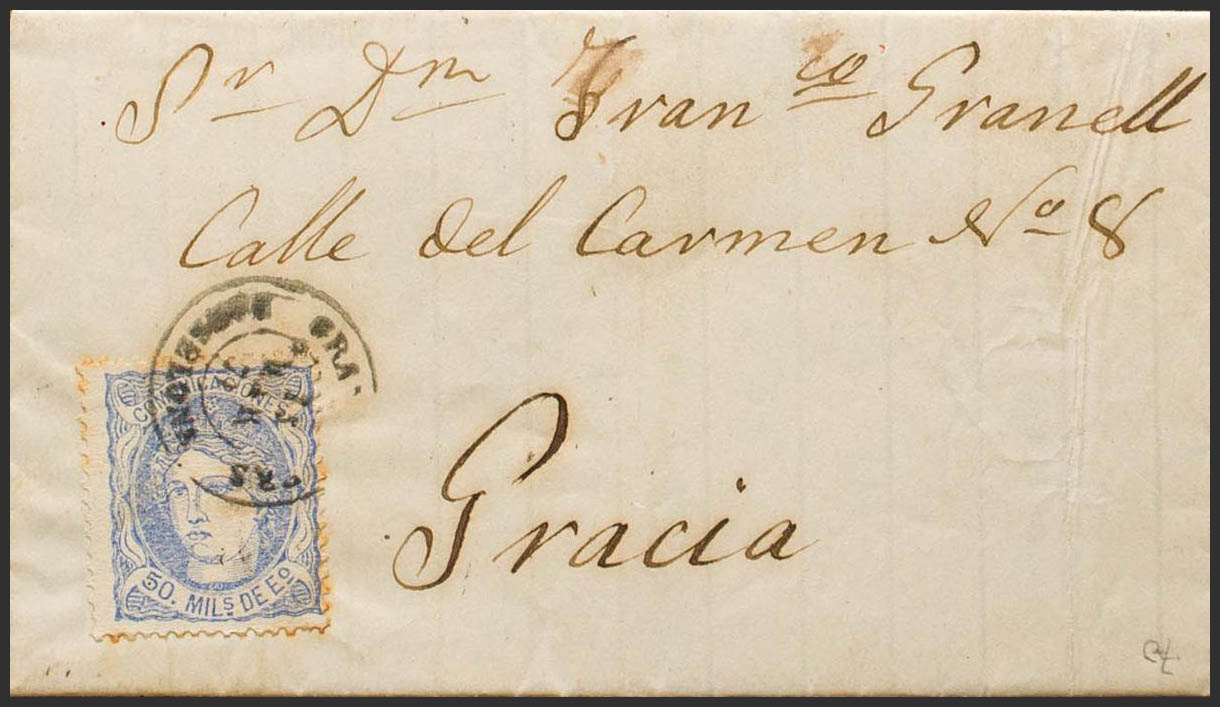 Sr Dn Franco Granell
Calle del Carmen No 8
Gracia
COMUNICACIONES
50. MILS. DE Eo